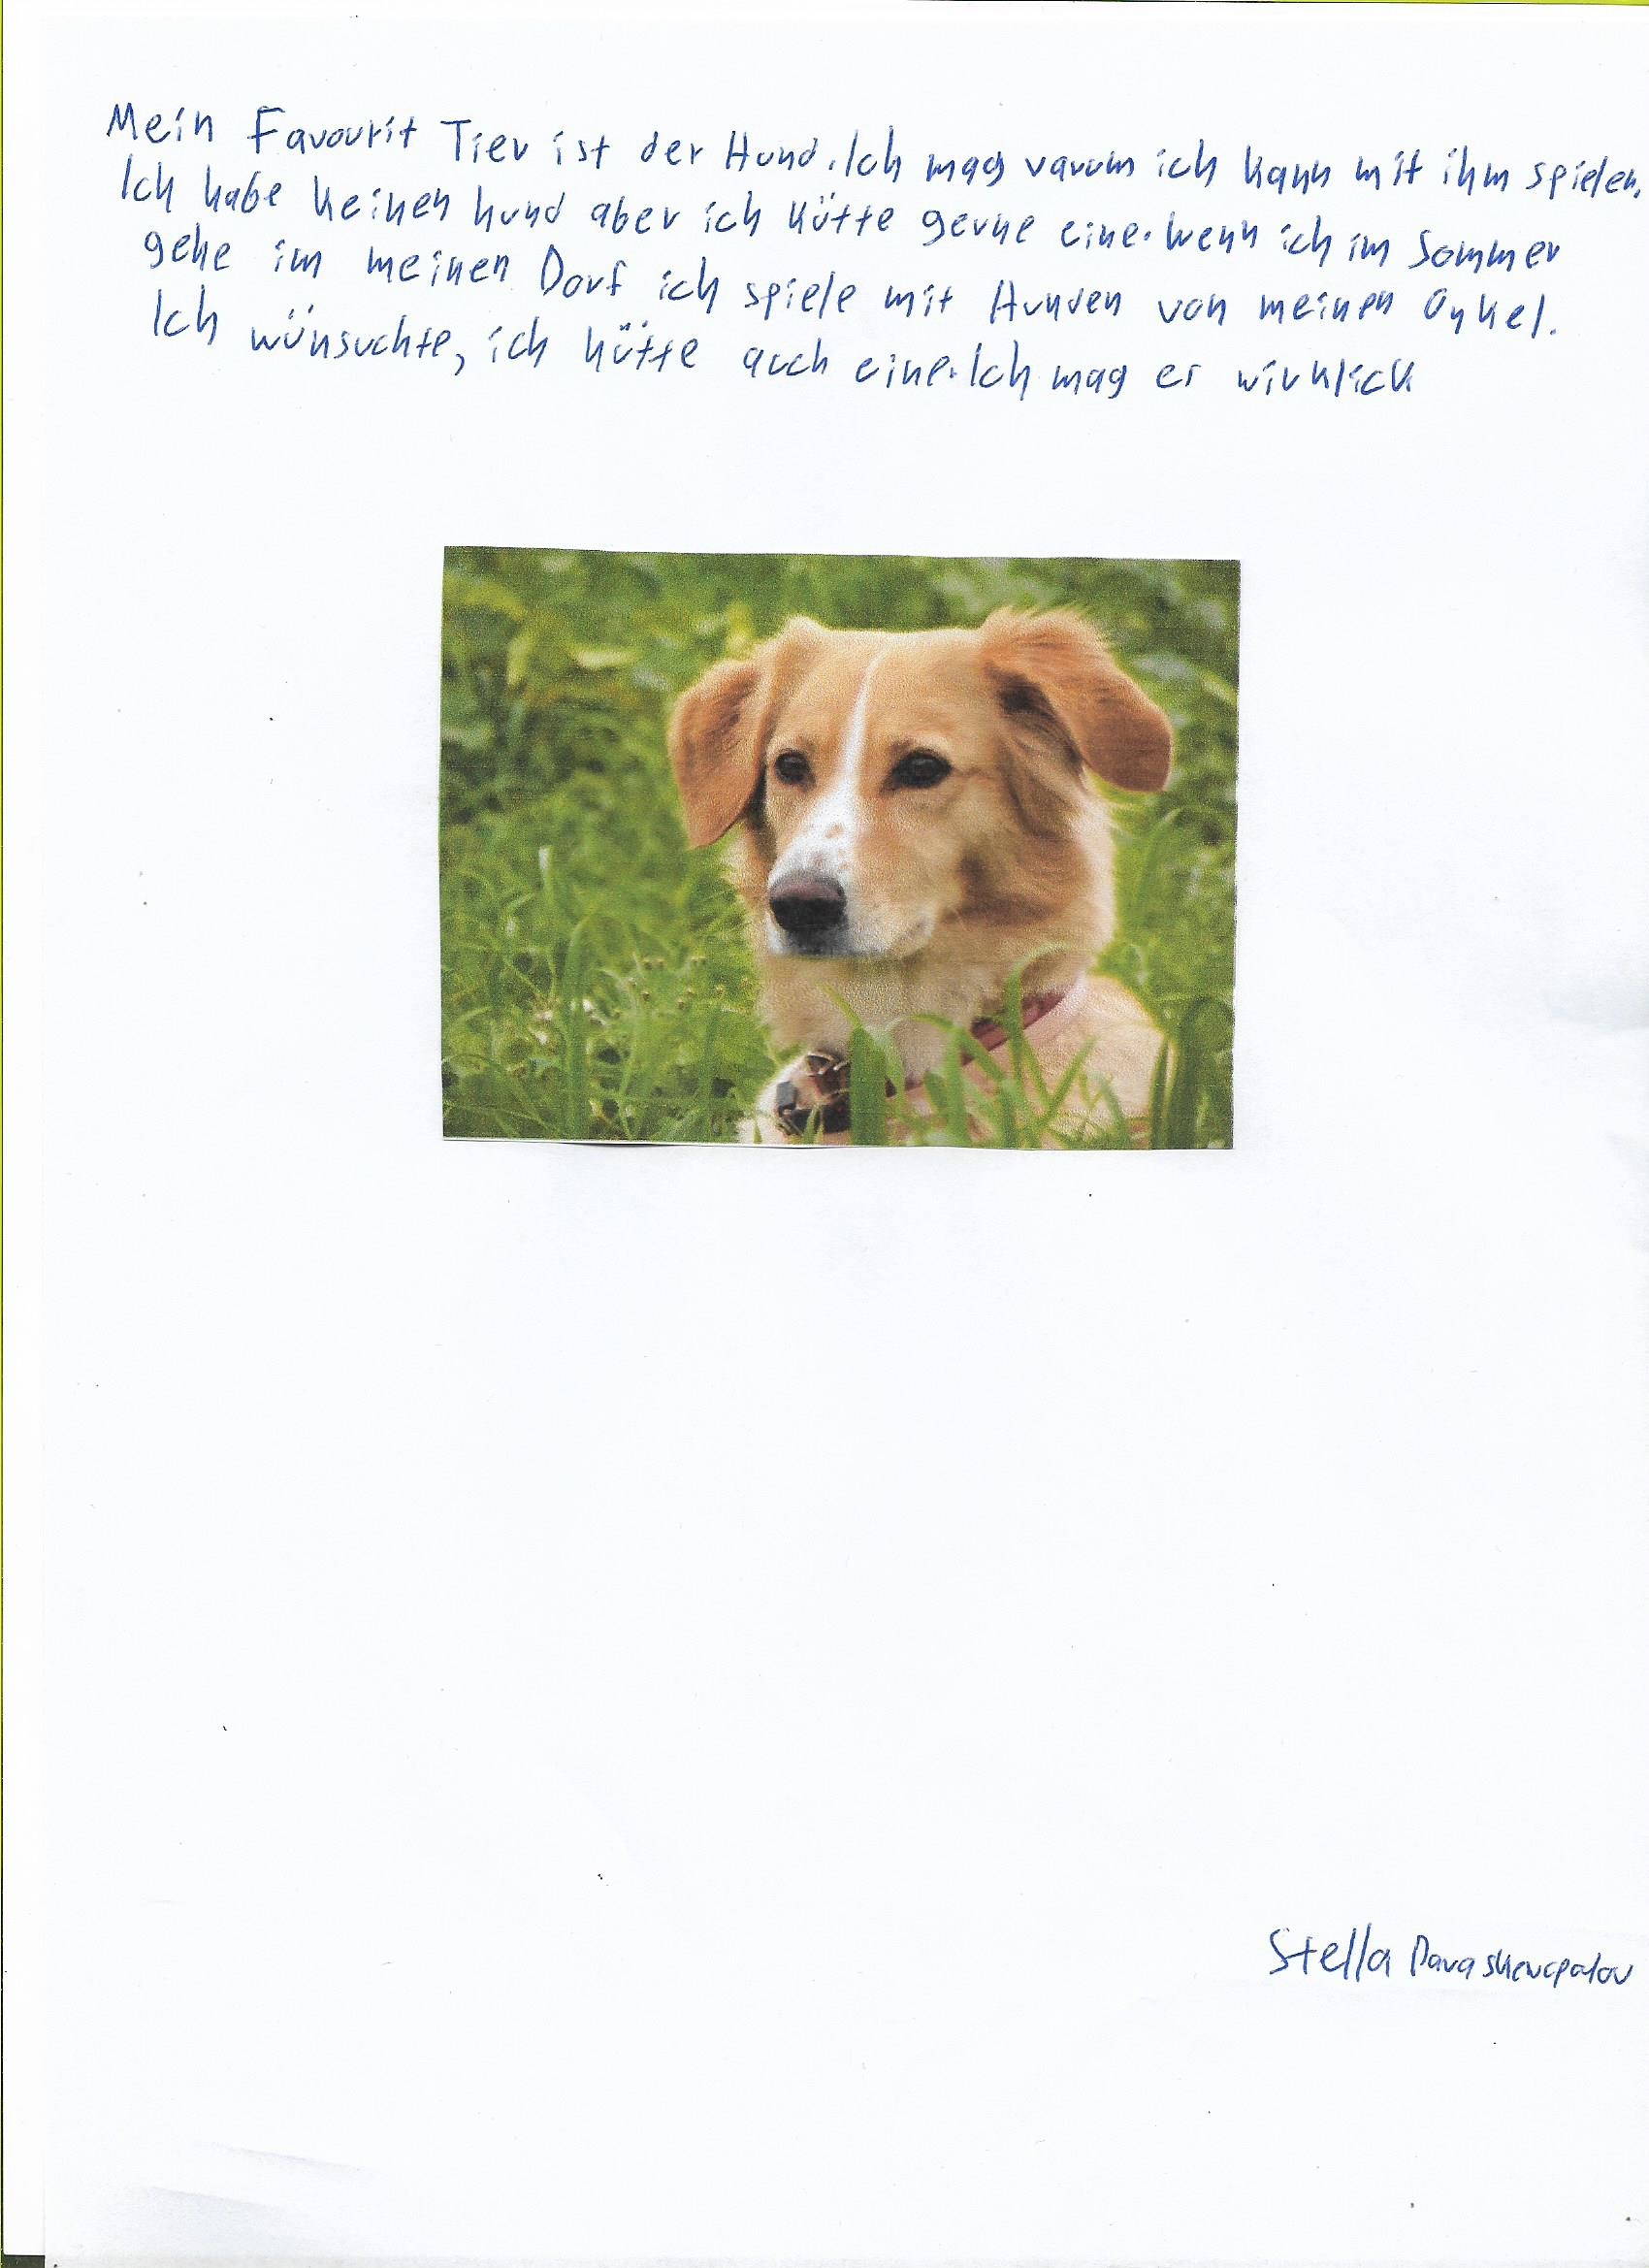 Mein Favourit Tier ist der Hund. Ich mag varum ich kann mit ihm spielen.
Ich habe keinen hund aber ich hätte gerne eine. Wenn ich im Sommer
gehe im meinen Dorf ich spiele mit Hunden von meinen Onkel.
Ich wünsuchte, ich hätte auch eine. Ich mag er wirklich
Stella